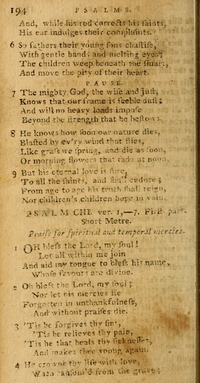 194 PSALMS.
And, while his rod corrects his saints,
His ear indulges their complaints.
6 So fathers their young sons chastise,
With gentle hand and melting eyes;
The children weep beneath the smart,
And move the pity of their heart.
PAUSE.
7 The mighty God, the wise and just,
Knows that our frame is feeble dust;
And will no heavy loads impose
Beyond the strength that he bestows.
8 He knows how soon our nature dies,
Blasted by ev'ry wind that flies,
Like grass we spring, and die as soon,
Or morning flowers that fade at noon.
9 But his eternal love is sure,
To all the saints, and shall endure;
From age to age his truth shall reign,
Nor children's children hope in vain.
PSALM CIII. ver. 1,—7. First part.
Short Metre.
Praise for spiritual and temporal mercies.
1 OH bless the Lord, my soul!
Let all within me join
And aid my tongue to bless his name,
Whose favours are divine.
2 Oh bless the Lord, my soul;
Nor let his mercies lie
Forgotten in unthankfulness,
And without praises die.
3 'Tis he forgives thy sins,
'Tis he relieves thy pain,
'Tis he that heals thy sicknesses,
And makes thee young again.
4 He crowns thy life with love,
When ransom'd from the grave;